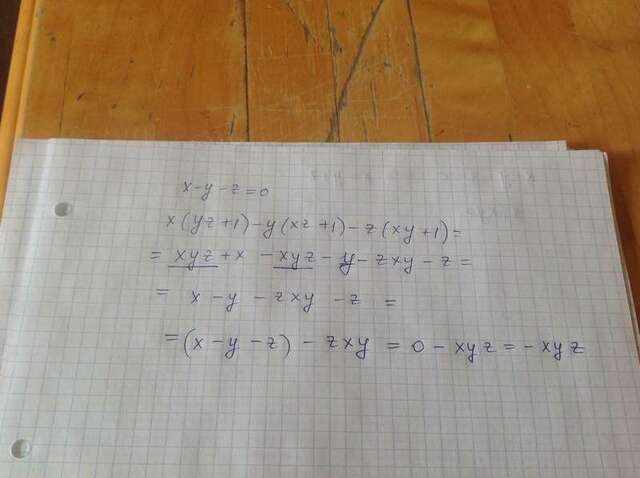 x-y-z=0
x(yz+1)-y(xz+1)-z(xy+1)=
= xyz+x -xyz-y-zxy-z=
= x-y-zxy-z =
=(x-y-z)-zxy = 0-xyz=-xyz